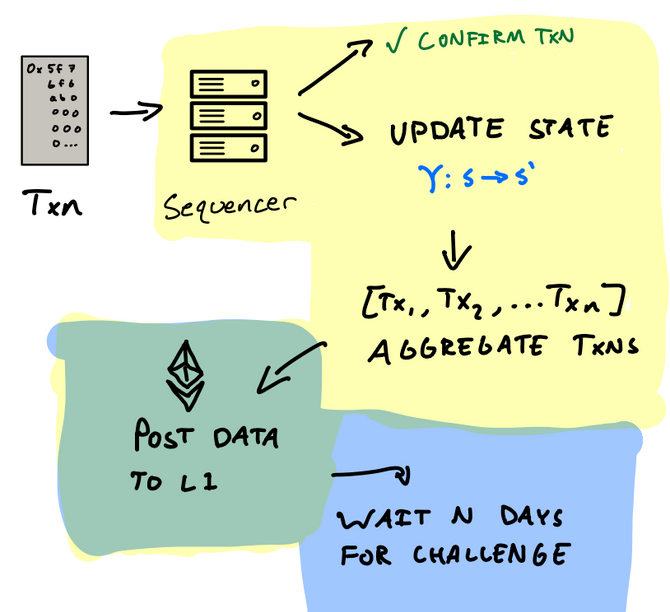 0x5f7
6f6
ab0
000
000
0...
Txn
Sequencer
✓ CONFIRM TXN
UPDATE STATE
Υ: s → s'
[Tx₁, Tx₂, ... Txn]
AGGREGATE TXNS
POST DATA
TO L1
WAIT N DAYS
FOR CHALLENGE